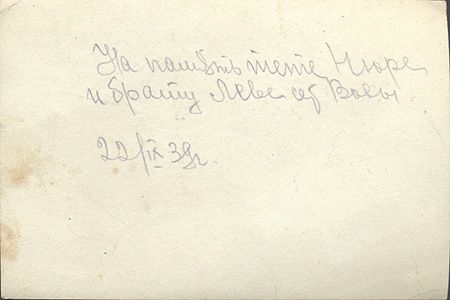 На память тете Нюре
и брату Леве от Вовы
22/IX 39г.